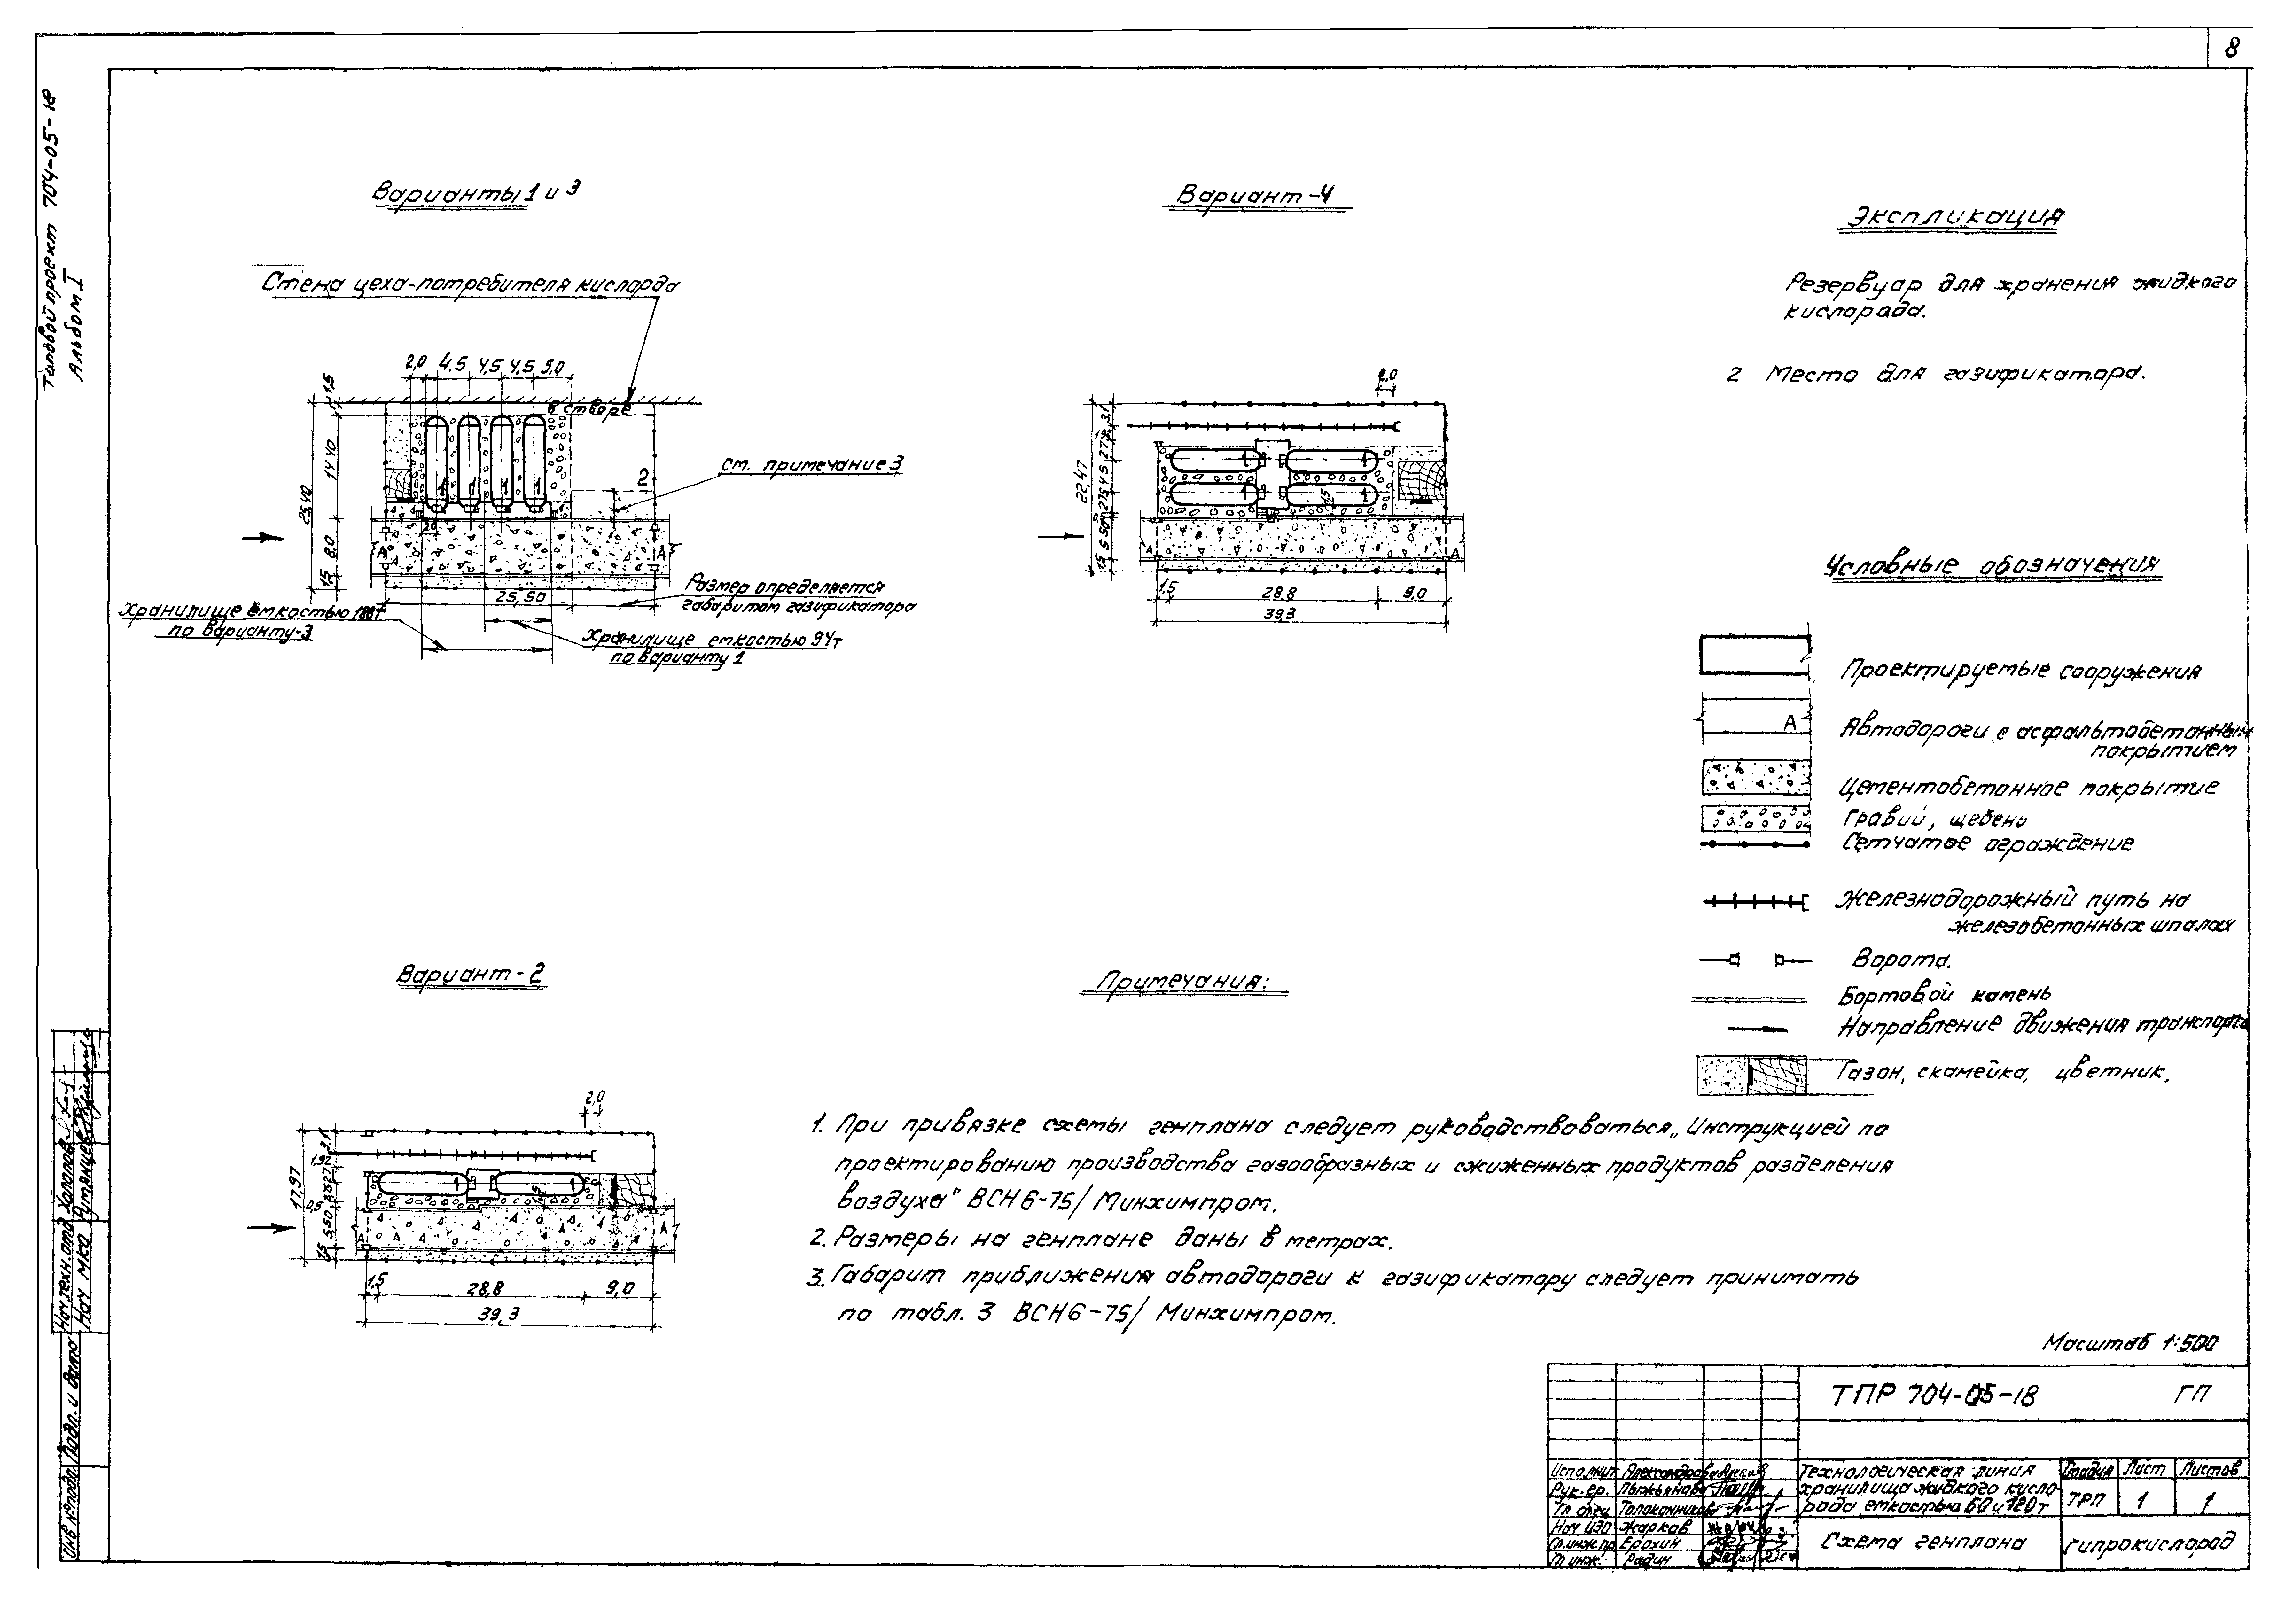 8
Типовой проект 704-05-18
Альбом I
Варианты 1 и 3
Стена цеха-потребителя кислорда
2,0 4.5 4,5 4,5 5,0
в створе
1,5
14 40
25,40
8.0
1,5
2,0
1 1 1 1
2
см. примечание 3
А А
25,50
Размер определяется
габаритом газификатора
Хранилище емкостью
по варианту-3
Хранилище емкостью 94т
по варианту 1
Вариант-4
2,0
3,1
1,92
2,7
4,5
22,47
5,50
1,5
1 1
1 1
1,5
А А
1,5 28,8 9,0
39,3
Экспликация
Резервуар для хранения жидкого
кислорада.
2 Место для газификатора.
Условные обозначения
Проектируемые сооружения
А
Автодороги с асфальтобетонным
покрытием
Цементобетонное покрытие
Гравий, щебень
Сетчатое ограждение
Железнодорожный путь на
железобетонных шпалах
Ворота.
Бортовой камень
Направление движения транспорта
Газон, скамейка, цветник.
Вариант-2
2,0
3,1
1,92
17,97
0,5
5,50
1,5
1 1
1,5
А А
1,5 28,8 9,0
39,3
Примечания:
1. При привязке схемы генплана следует руководствоваться „Инструкцией по
проектированию производства газообразных и сжиженных продуктов разделения
воздуха" ВСН6-75/Минхимпром.
2. Размеры на генплане даны в метрах.
3. Габарит приближения автодороги к газификатору следует принимать
по табл. 3 ВСН6-75/ Минхимпром.
Масштаб 1:500
ТПР 704-05-18 ГП
Технологическая линия
хранилища жидкого кисло-
рода емкостью 60 и 120 т
Стадия Лист Листов
ТРП 1 1
Схема генплана
гипрокислород
Исполнит Александрова
Рук. гр. Лыжьянова
Гл спец Толоконников
Нач ИЗО Жарков
Гл.инж.пр Ерохин
Гл инж. Радин
Нач техн. отд Холопов
Нач МКО Румянцев
Подп. и дата
Инв № подл.